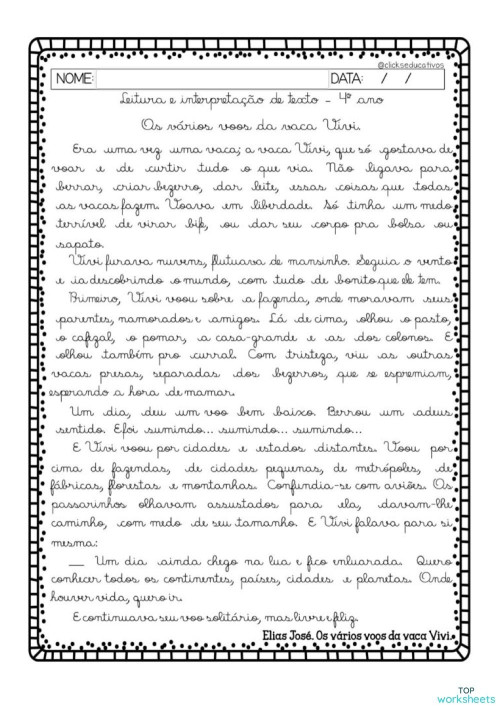 @clickseducativos
NOME: DATA: / /
Leitura e interpretação de texto - 4º ano
Os vários voos da vaca Vivi.
Era uma vez uma vaca; a vaca Vivi, que só gostava de
voar e de curtir tudo o que via. Não ligava para
berrar, criar bezerro, dar leite, essas coisas que todas
as vacas fazem. Voava em liberdade. Só tinha um medo
terrível de virar bife, ou dar seu corpo pra bolsa ou
sapato.
Vivi furava nuvens, flutuava de mansinho. Seguia o vento
e ia descobrindo o mundo, com tudo de bonito que ele tem.
Primeiro, Vivi voou sobre a fazenda, onde moravam seus
parentes, namorados e amigos. Lá de cima, olhou o pasto,
o cafezal, o pomar, a casa-grande e as dos colonos. E
olhou também pro curral. Com tristeza, viu as outras
vacas presas, separadas dos bezerros, que se espremiam,
esperando a hora de mamar.
Um dia, deu um voo bem baixo. Berrou um adeus
sentido. E foi sumindo... sumindo... sumindo...
E Vivi voou por cidades e estados distantes. Voou por
cima de fazendas, de cidades pequenas, de metrópoles, de
fábricas, florestas e montanhas. Confundia-se com aviões. Os
passarinhos olhavam assustados para ela, davam-lhe
caminho, com medo de seu tamanho. E Vivi falava para si
mesma:
__ Um dia ainda chego na lua e fico enluarada. Quero
conhecer todos os continentes, países, cidades e planetas. Onde
houver vida, quero ir.
E continuava seu voo solitário, mas livre e feliz.
Elias José. Os vários voos da vaca Vivi.
TOP
worksheets